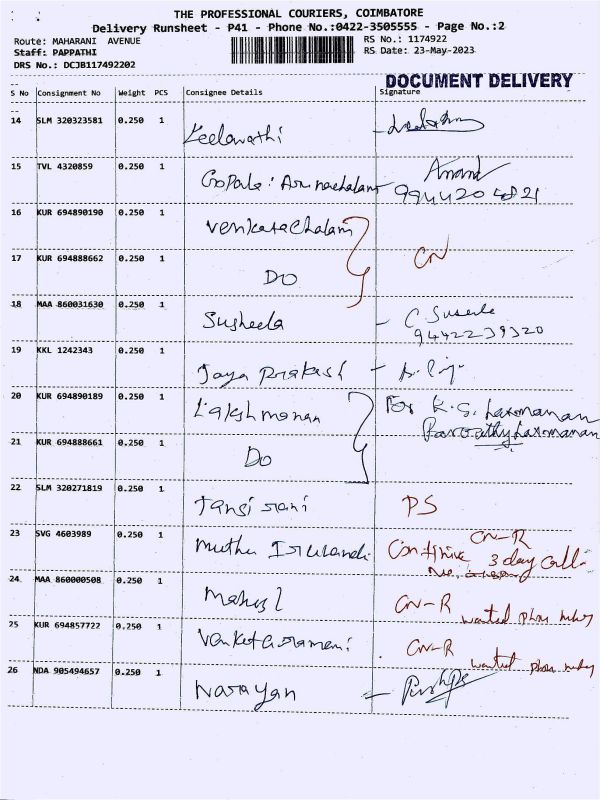 THE PROFESSIONAL COURIERS, COIMBATORE
Delivery Runsheet - P41 - Phone No.:0422-3505555 - Page No.:2
Route: MAHARANI AVENUE
RS No.: 1174922
Staff: PAPPATHI
RS Date: 23-May-2023
DRS No.: DCJB117492202
DOCUMENT DELIVERY
S No Consignment No Weight PCS Consignee Details Signature
14 SLM 320323581 0.250 1 Leelavathi
15 TVL 4320859 0.250 1 Gopala: Arunachalam Anand
16 KUR 694890190 0.250 1 Venkatachalam
17 KUR 694888662 0.250 1 DO CN
18 MAA 860031630 0.250 1 Susheela - C. Suseela
9442239320
19 KKL 1242343 0.250 1 Jaya Prakash -
20 KUR 694890189 0.250 1 Lakshmanan For K. G. Laxmanan
Parvathy Laxmanan
21 KUR 694888661 0.250 1 Do
22 SLM 320271819 0.250 1 Jansi rani PS
23 SVG 4603989 0.250 1 Muthu CN-R
Continue 3 day call
24 MAA 860000508 0.250 1 CN-R wanted phon
25 KUR 694857722 0.250 1 Venkataramani CN-R
wanted phon
26 NDA 905494657 0.250 1 Narayan - Pushpa